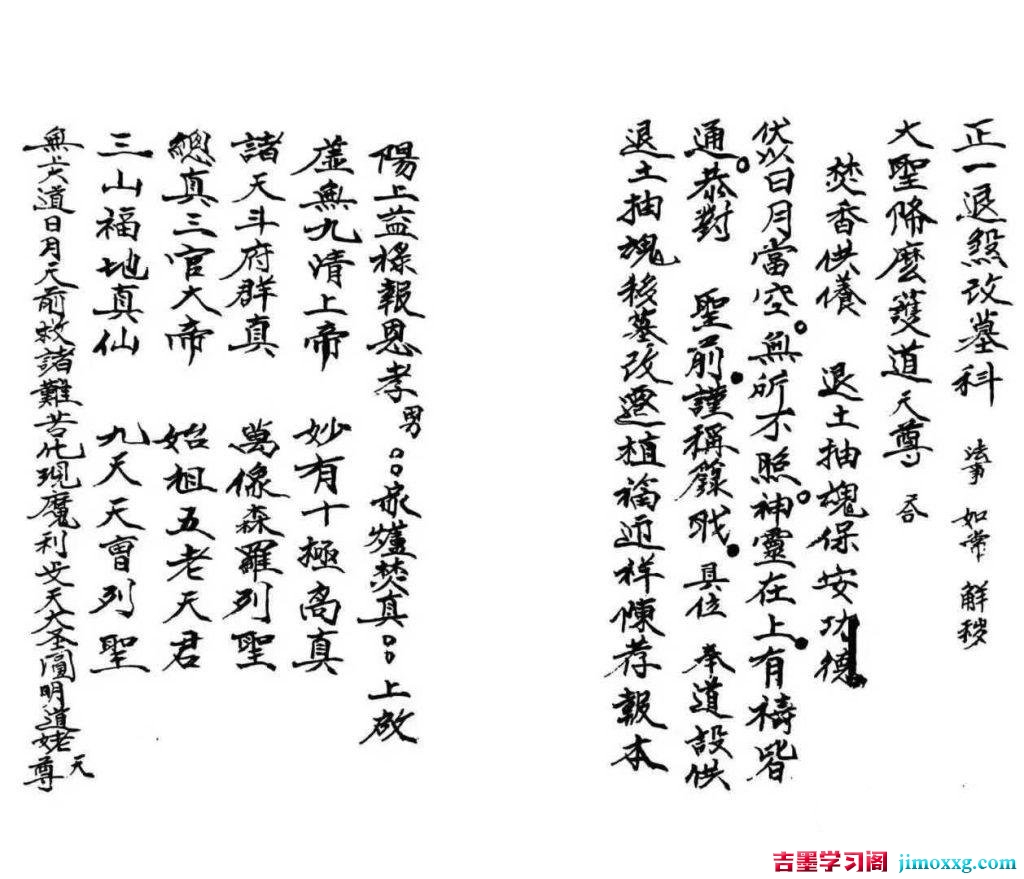 正一退煞改墓科 法事 如常 解穢
大聖降麽護道天尊 吞
焚香供儀 退土抽魂保安功德
伏以日月當空。無所不照。神靈在上。有禱皆
通。恭對 聖前。謹稱籙職。具位 奉道設供
退土抽魂移墓改遷植福迎祥陳荐報本
陽上益椽報恩孝男○○家爐焚真○○上啟
虛無九清上帝 妙有十極高真
諸天斗府群真 萬像森羅列聖
總真三官大帝 始祖五老天君
三山福地真仙 九天天曹列聖
無上大道日月天前救諸難苦化現魔利支天大圣圓明道姥天尊
吉墨学习阁 jimoxxg.com